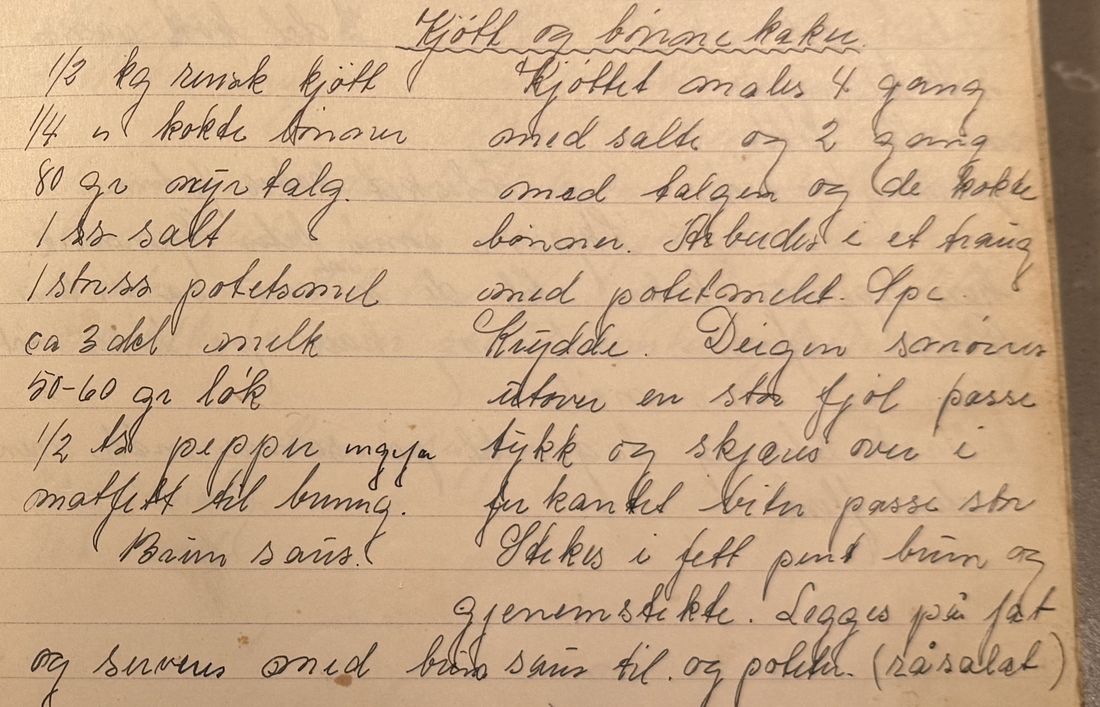 Kjøtt og bønne kaker.
1/2 kg rensk kjøtt
1/4 " kokte bønner
80 gr nyrtalg.
1 ss salt
1 stor ss potetsmel
ca 3 del melk
50-60 gr løk
1/2 ts pepper ingefer
matfett til bruning.
Brun saus.
Kjøttet males 4 gang
med salte og 2 gang
med talgen og de kokte
bønner. Arbeides i et traug
med potetmelet. Spe.
Krydde. Deigen smøres
utover en stor fjøl passe
tykk og skjæres over i
firkantet biter passe stor
Stekes i fett pent brun og
gjenemstekte. Legges på fat
og serveres med brun saus til. og poteter. (råsalat)